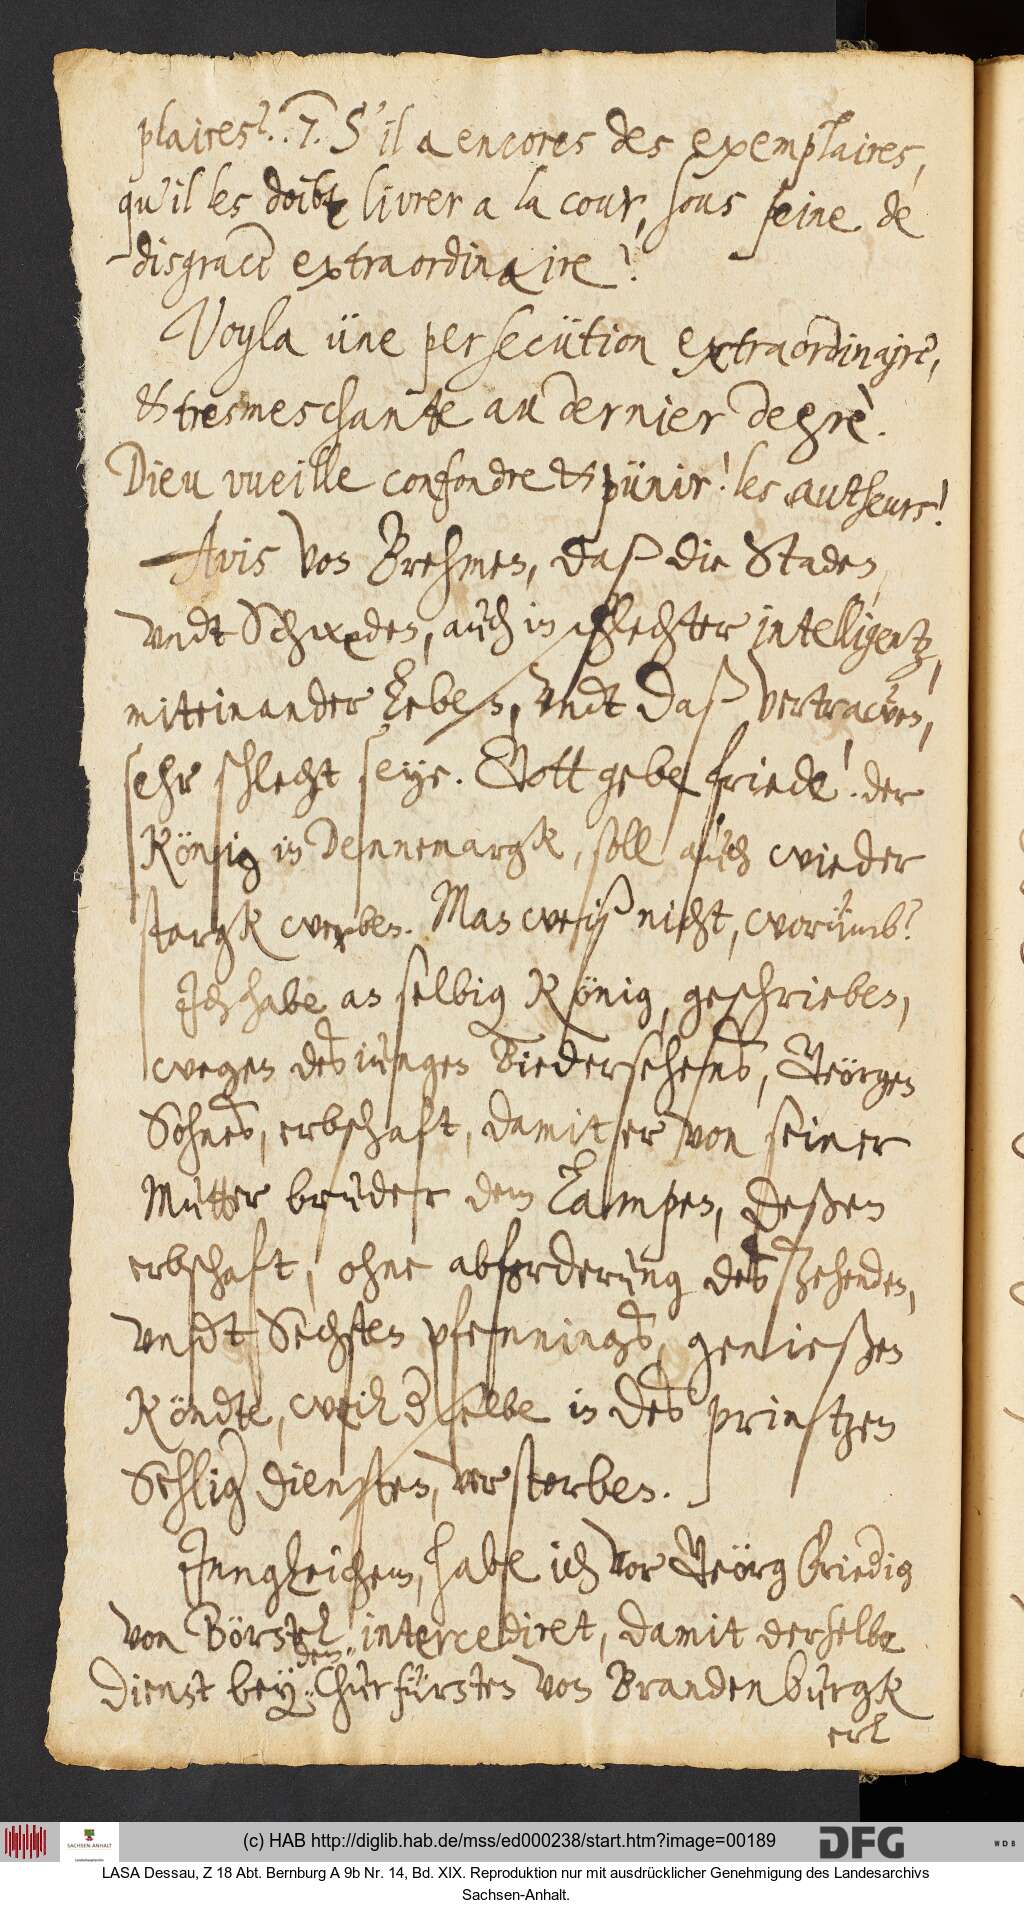 plaires? 7. S'il a encores des exemplaires,
qu'il les doibt livrer a la cour, sous peine de
disgrace extraordinaire?
Voyla üne persecütion extraordinayre,
& tresmeschante au dernier degrè.
Dieu vueille confondre & pünir! les autheurs!
Avis von Brehmen, daß die Staden
vndt Schweden, auch in schlechter intelligentz,
miteinander leben, vndt daß vertrauen,
sehr schlecht seye. Gott gebe friede! der
König in Dennemargk, soll auch wieder
stargk werben. Man weiß nicht, worumb?
Jch habe an selbig König, geschrieben,
wegen des iungen Biedersehens, Geörgen
Sohnes, erbschaft, damit er von seiner
Mutter bruder dem Lampen, deßen
erbschaft, ohne abforderung des Zehenden,
vndt Sechsten pfennings, genießen
Köndte, weil derselbe in des printzen
Sehlig diensten, verstorben.
Jnngleichem, habe ich vor Geörg Friedig
von Börstel intercediret, damit derselbe
dienst bey dem Churfürsten von Brandenburgk
(c) HAB http://diglib.hab.de/mss/ed000238/start.htm?image=00189
SACHSEN-ANHALT
DFG
WDB
LASA Dessau, Z 18 Abt. Bernburg A 9b Nr. 14, Bd. XIX. Reproduktion nur mit ausdrücklicher Genehmigung des Landesarchivs
Sachsen-Anhalt.